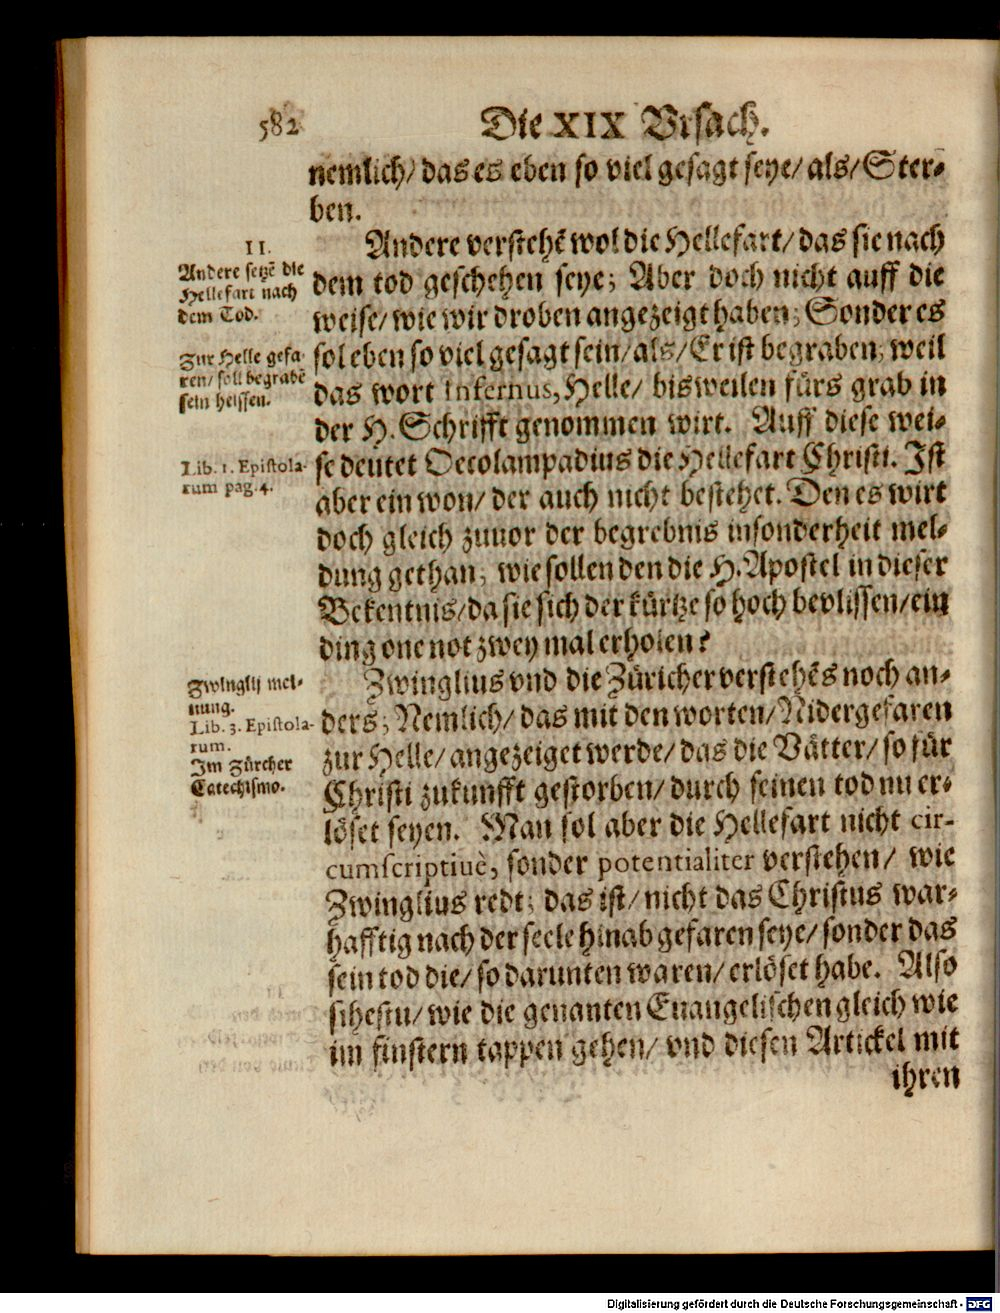 582
Die XIX Vrsach.
nemlich/ das es eben so viel gesagt seye/ als/ Ster-
ben.
II.
Andere setzẽ die
Hellefart nach
dem Tod.
Zur Helle gefa-
ren/ soll begrabẽ
sein heissen.
Lib. 1. Epistola-
rum pag. 4.
Andere verstehẽ wol die Hellefart/ das sie nach
dem tod geschehen seye; Aber doch nicht auff die
weise/ wie wir droben angezeigt haben; Sonder es
sol eben so viel gesagt sein/ als/ Er ist begraben; weil
das wort infernus, Helle/ bisweilen fürs grab in
der H. Schrifft genommen wirt. Auff diese wei-
se deutet Oecolampadius die Hellefart Christi. Ist
aber ein won/ der auch nicht bestehet. Den es wirt
doch gleich zuuor der begrebnis insonderheit mel-
dung gethan; wie sollen den die H. Apostel in dieser
Bekentnis/ da sie sich der kürtze so hoch bevlissen/ ein
ding one not zwey mal erholen?
Zwinglij mei-
nung.
Lib. 3. Epistola-
rum.
Im Zürcher
Catechismo.
Zwinglius vnd die Züricher verstehẽs noch an-
ders; Nemlich/ das mit den worten/ Nidergefaren
zur Helle/ angezeiget werde/ das die Vätter/ so für
Christi zukunfft gestorben/ durch seinen tod nu er-
löset seyen. Man sol aber die Hellefart nicht cir-
cumscriptiuè, sonder potentialiter verstehen/ wie
Zwinglius redt; das ist/ nicht das Christus war-
hafftig nach der seele hinab gefaren seye/ sonder das
sein tod die/ so darunten waren/ erlöset habe. Also
sihestu/ wie die genanten Euangelischen gleich wie
im finstern tappen gehen/ vnd diesen Artickel mit
ihren
Digitalisierung gefördert durch die Deutsche Forschungsgemeinschaft - DFG